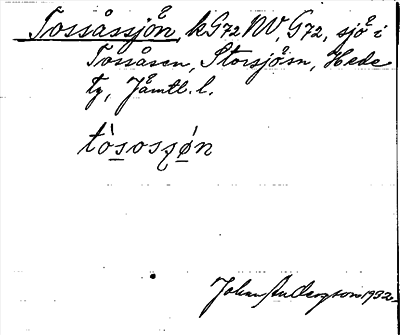 Tossåssjön, kG72NV, G72, sjö i
Tossåsen, Storsjö sn, Hede
tg, Jämtl. l.
tò̱sosʂø̱n
Johan Andersson 1932.